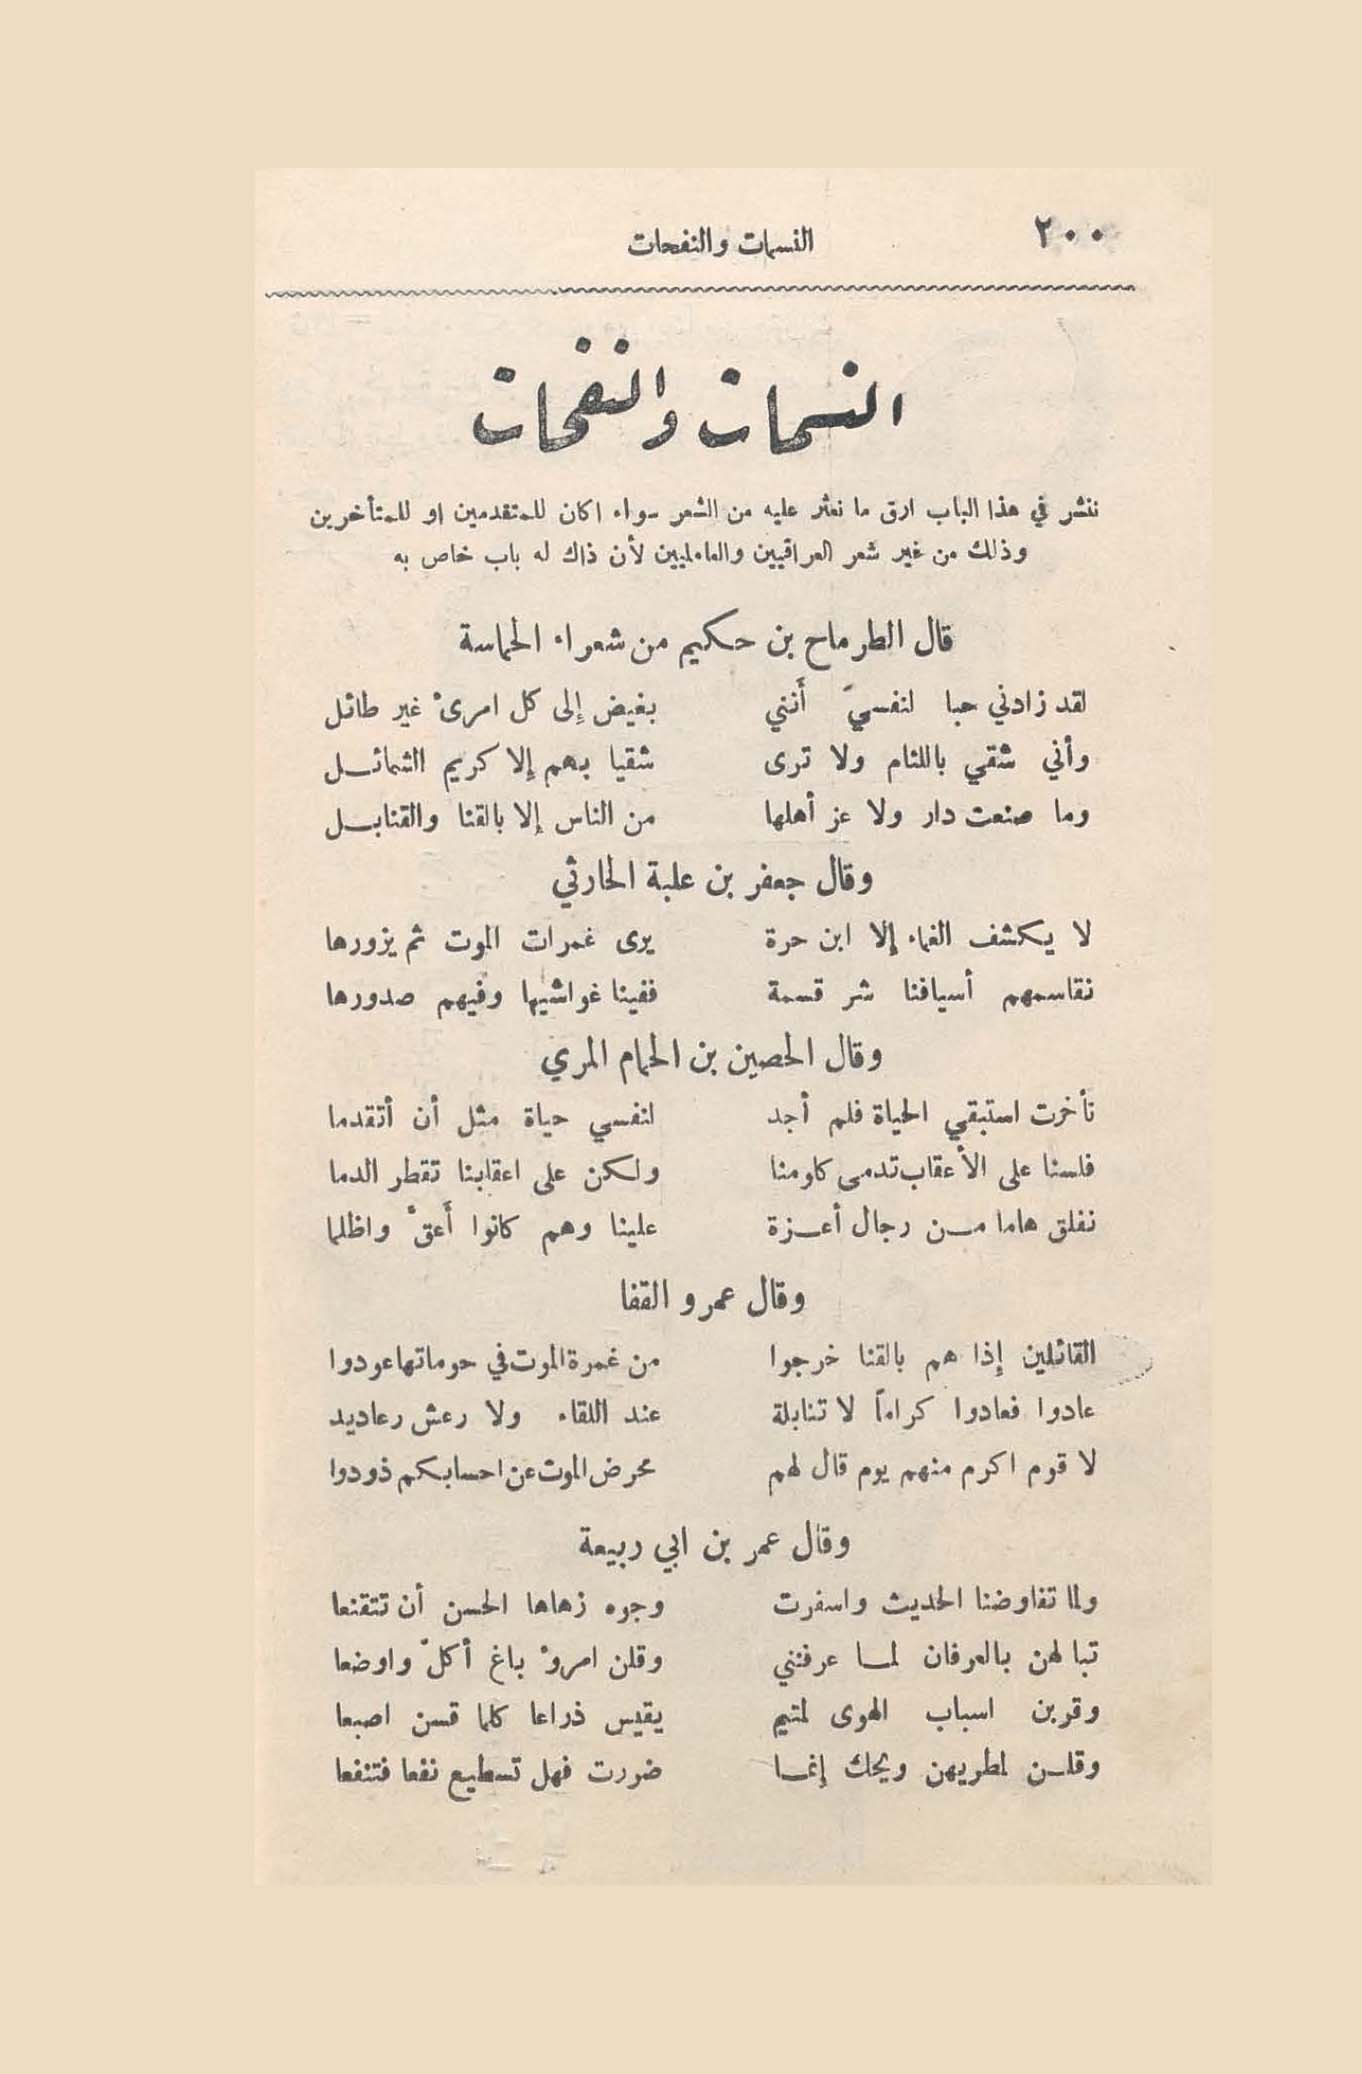 ٢٠٠
النسمات والنفحات
النسمات والنفحات
ننشر في هذا الباب ارق ما نعثر عليه من الشعر سواء اكان للمتقدمين او للمتأخرين
وذلك من غير شعر العراقيين والعامليين لأن ذاك له باب خاص به
قال الطرماح بن حكيم من شعراء الحماسة
لقد زادني حبا لنفسيَ أَنني بغيض إلى كل امرئ غير طائل
وأني شقي باللئام ولا ترى شقيا بهم إلا كريم الشمائـل
وما صنعت دار ولا عز أهلها من الناس إلا بالقنا والقنابـل
وقال جعفر بن علبة الحارثي
لا يكشف الغماء إلا ابن حرة يرى غمرات الموت ثم يزورها
نقاسمهم أسيافنا شر قسمة ففينا غواشيها وفيهم صدورها
وقال الحصين بن الحمام المري
تأخرت استبقي الحياة فلم أجد لنفسي حياة مثل أن أتقدما
فلسنا على الأعقاب تدمى كلومنا ولكن على اعقابنا تقطر الدما
نفلق هاما مـن رجال أعـزة علينا وهم كانوا أَعقَّ واظلما
وقال عمرو القفا
القائلين إذا هم بالقنا خرجوا من غمرة الموت في حوماتها عودوا
عادوا فعادوا كراماً لا تنابلة عند اللقاء ولا رعش رعاديد
لا قوم اكرم منهم يوم قال لهم محرض الموت عن احسابكم ذودوا
وقال عمر بن ابي ربيعة
ولما تفاوضنا الحديث واسفرت وجوه زهاها الحسن أن تتقنعا
تبا لهن بالعرفان لمـا عرفنني وقلن امرؤ باغ أكلّ واوضعا
وقربن اسباب الهوى لمتيم يقيس ذراعا كلما قسن اصبعا
وقلـن لمطريهن ويحك إنمـا ضررت فهل تسطيع نفعا فتنفعا